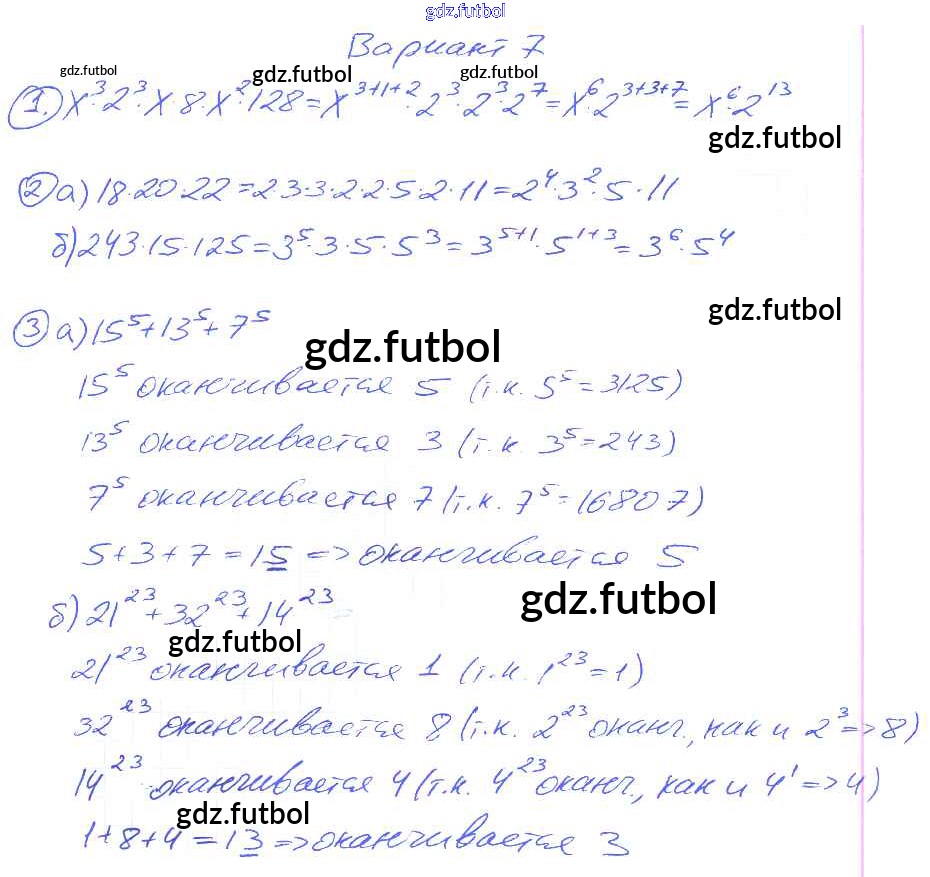 gdz.futbol
Вариант 7
gdz.futbol gdz.futbol gdz.futbol
1. x³·2³·x·8·x²·128=x³⁺¹⁺²·2³·2³·2⁷=x⁶·2³⁺³⁺⁷=x⁶·2¹³
gdz.futbol
2 а) 18·20·22=2·3·3·2·2·5·2·11=2⁴·3²·5·11
б) 243·15·125=3⁵·3·5·5³=3⁵⁺¹·5¹⁺³=3⁶·5⁴
gdz.futbol
3 а) 15⁵+13⁵+7⁵
gdz.futbol
15⁵ оканчивается 5 (т.к. 5⁵=3125)
13⁵ оканчивается 3 (т.к. 3⁵=243)
7⁵ оканчивается 7 (т.к. 7⁵=16807)
5+3+7=15 => оканчивается 5
gdz.futbol
б) 21²³+32²³+14²³
gdz.futbol
21²³ оканчивается 1 (т.к. 1²³=1)
32²³ оканчивается 8 (т.к. 2²³ оканч., как и 2³=>8)
14²³ оканчивается 4 (т.к. 4²³ оканч., как и 4¹=>4)
gdz.futbol
1+8+4=13=>оканчивается 3